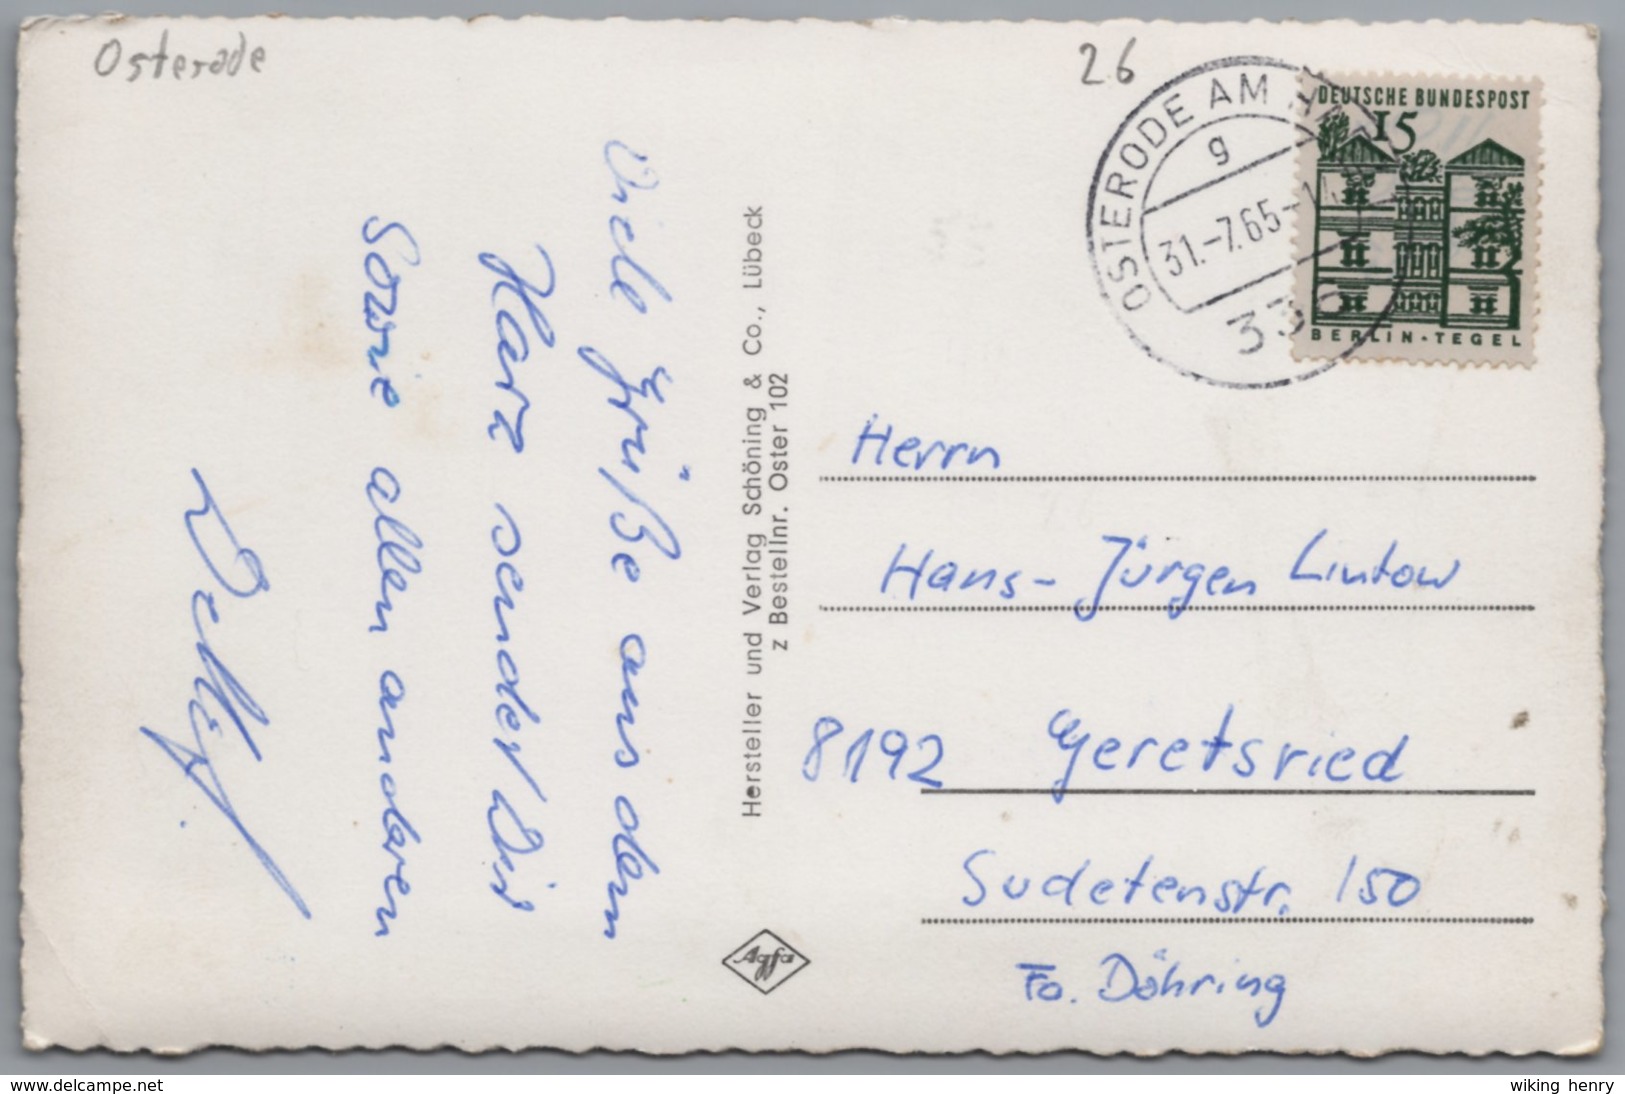 Osterode
26
OSTERODE AM H
g
31.-7.65-1
336
DEUTSCHE BUNDESPOST
15
BERLIN-TEGEL
Viele Grüße aus dem
Harz sendet Dir
sowie allen anderen
Detlef.
Hersteller und Verlag Schöning & Co., Lübeck
z Bestellnr. Oster 102
Agfa
Herrn
Hans-Jürgen Lintow
8192 Geretsried
Sudetenstr. 150
Fa. Döhring
www.delcampe.net
wiking henry